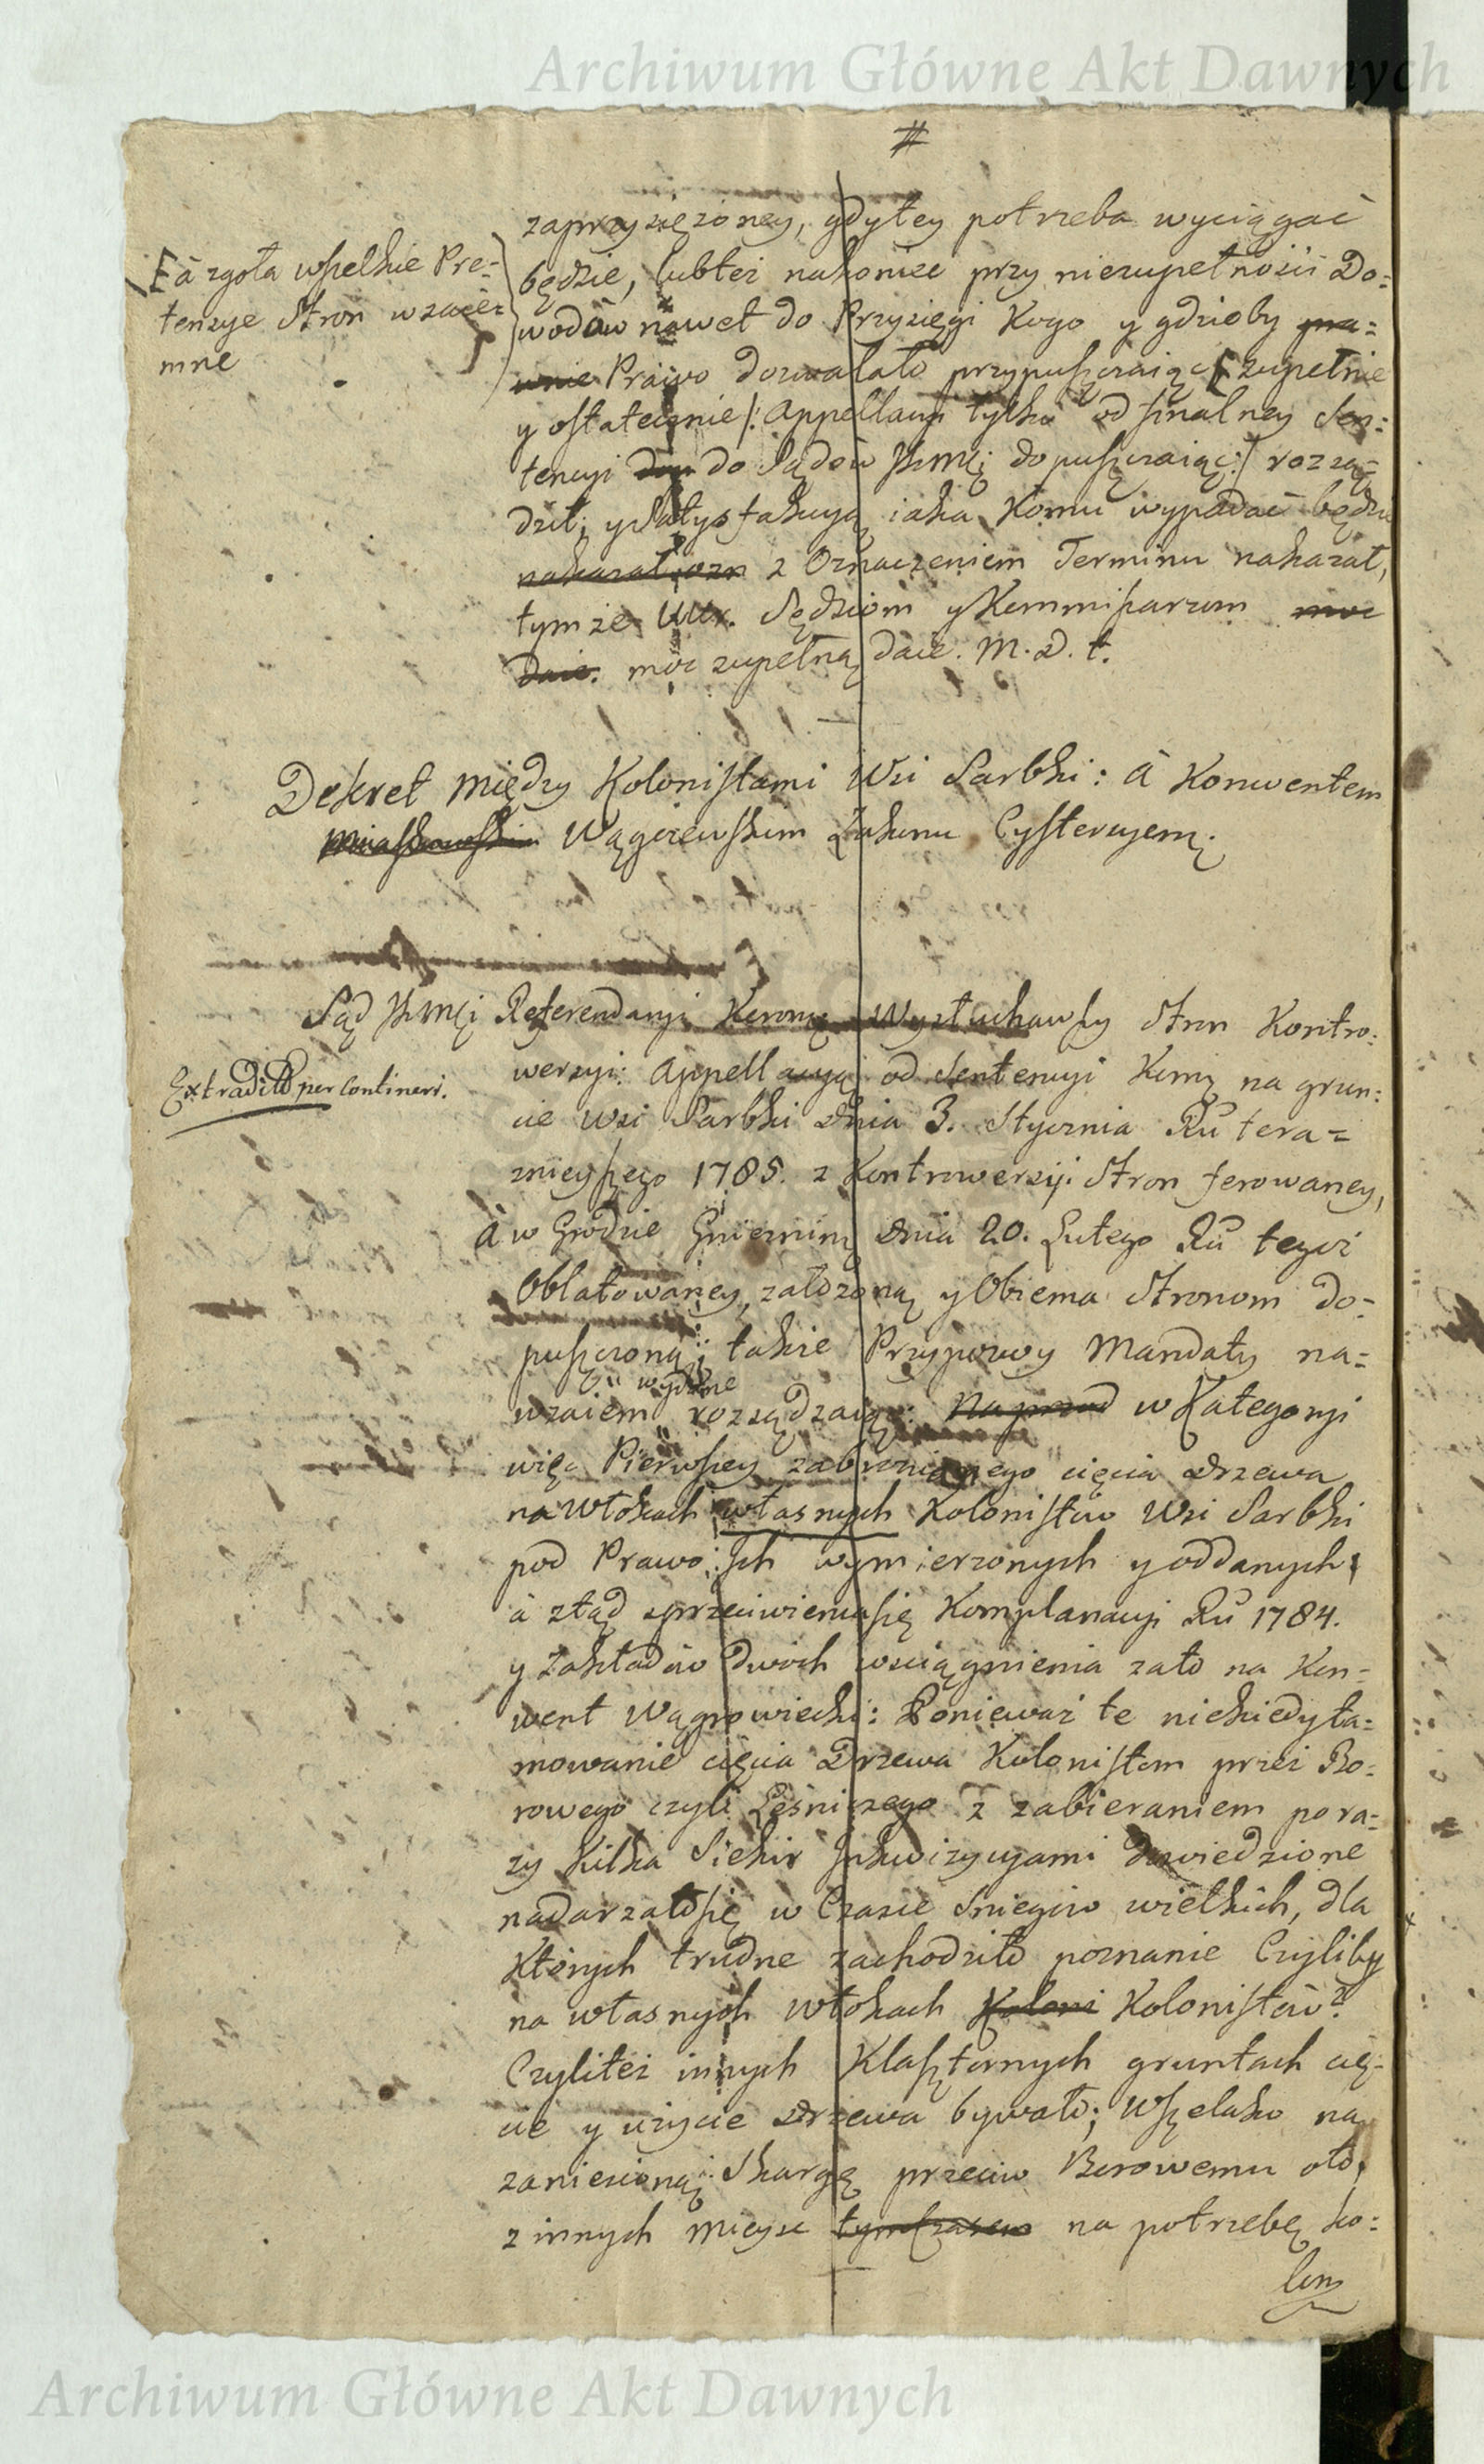 Archiwum Główne Akt Dawnych
#
zaprzysiężoney, gdytey potrzeba wyciągać
będzie, lubteż nakoniec przy niezupełności Do=
wodów nawet do Przysięgi Kogo y gdzieby pra=
wnie Prawo dozwalało przypuszczaiąc [ zupełnie
y ostatecznie /: Appellacyi tylko od finalney Sen=
tencyi do Sądów JKMCi dopuszczaiąc :/ rozsą=
dził, y Satysfakcyą iaka Komu wypadać będzie
nakazał ozn z Oznaczeniem Terminu nakazał,
tymże Ur. Sędziom y Kommissarzom moc
daie. moc zupełną daie. M. D. t.
[ à zgoła wszelkie Pre=
tensye Stron wzaie=
mne
Dekret między Kolonistami Wsi Sarbki: à Konwentem
Wągrowskim Zakonu Cystercyem.
Sąd JKMCi Referendaryi Koronney Wysłuchawszy Stron Kontro=
wersyi: Appellacyą od Sentencyi Kom̄ na grun=
cie Wsi Sarbki dnia 3. Stycznia Ru tera=
znieyszego 1785. z Kontrowersyi Stron ferowaney,
à w Grodzie Gniezninm̄ dnia 20. Lutego Ru tegoż
Oblatowaney, założoną y Obiema Stronom do=
puszczoną; takie Przypowy Mandaty na=
wydane
wzaiem rozsądzaiąc: Naprzod w Kategoryi
więc Pierwszey zabronionego cięcia drzewa
na włokach własnych Kolonistów Wsi Sarbki
pod Prawo Jch wymierzonych y oddanych,
à ztąd sprzeciwienia się Komplanacyi Ru 1784.
y Zakładów dwóch wsciągnienia zato na Kon=
went Wągrowiecki: Ponieważ te niekiedy ta=
mowanie cięcia Drzewa Kolonistom przez Bo=
rowego czyli Leśniczego z zabieraniem po ra=
zy kilka Siekir Jnkwizycyami dowiedzione
nadarzało się w Czasie Sniegów wielkich, dla
Których trudne zachodziło poznanie Czyliby
na własnych włokach Koloni Kolonistów?
Czyliteż innych Klasztornych gruntach cię=
cie y użycie drzewa bywało; Wszelako na
zaniesioną Skargę przeciw Borowemu oto,
z innych mieysc tymczasem na potrzebę ko=
lon
Extraditto per Contineri.
Archiwum Główne Akt Dawnych